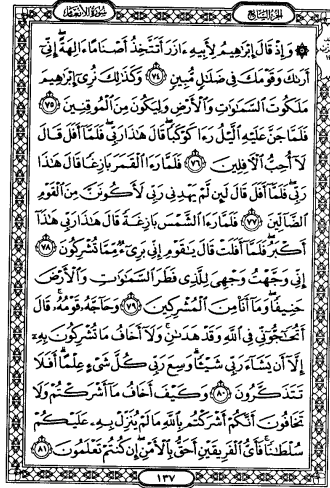 الجزء السابع
سورة الأنعام
۞ وَإِذْ قَالَ إِبْرَٰهِيمُ لِأَبِيهِ ءَازَرَ أَتَتَّخِذُ أَصْنَامًا ءَالِهَةً ۖ إِنِّىٓ
أَرَىٰكَ وَقَوْمَكَ فِى ضَلَٰلٍ مُّبِينٍ ﴿٧٤﴾ وَكَذَٰلِكَ نُرِىٓ إِبْرَٰهِيمَ
مَلَكُوتَ ٱلسَّمَٰوَٰتِ وَٱلْأَرْضِ وَلِيَكُونَ مِنَ ٱلْمُوقِنِينَ ﴿٧٥﴾
فَلَمَّا جَنَّ عَلَيْهِ ٱلَّيْلُ رَءَا كَوْكَبًا ۖ قَالَ هَٰذَا رَبِّى ۖ فَلَمَّآ أَفَلَ قَالَ
لَآ أُحِبُّ ٱلْءَافِلِينَ ﴿٧٦﴾ فَلَمَّا رَءَا ٱلْقَمَرَ بَازِغًا قَالَ هَٰذَا
رَبِّى ۖ فَلَمَّآ أَفَلَ قَالَ لَئِن لَّمْ يَهْدِنِى رَبِّى لَأَكُونَنَّ مِنَ ٱلْقَوْمِ
ٱلضَّآلِّينَ ﴿٧٧﴾ فَلَمَّا رَءَا ٱلشَّمْسَ بَازِغَةً قَالَ هَٰذَا رَبِّى هَٰذَآ
أَكْبَرُ ۖ فَلَمَّآ أَفَلَتْ قَالَ يَٰقَوْمِ إِنِّى بَرِىٓءٌ مِّمَّا تُشْرِكُونَ ﴿٧٨﴾
إِنِّى وَجَّهْتُ وَجْهِىَ لِلَّذِى فَطَرَ ٱلسَّمَٰوَٰتِ وَٱلْأَرْضَ
حَنِيفًا ۖ وَمَآ أَنَا۠ مِنَ ٱلْمُشْرِكِينَ ﴿٧٩﴾ وَحَآجَّهُۥ قَوْمُهُۥ ۚ قَالَ
أَتُحَٰٓجُّوٓنِّى فِى ٱللَّهِ وَقَدْ هَدَىٰنِ ۚ وَلَآ أَخَافُ مَا تُشْرِكُونَ بِهِۦٓ
إِلَّآ أَن يَشَآءَ رَبِّى شَيْـًٔا ۗ وَسِعَ رَبِّى كُلَّ شَىْءٍ عِلْمًا ۗ أَفَلَا
تَتَذَكَّرُونَ ﴿٨٠﴾ وَكَيْفَ أَخَافُ مَآ أَشْرَكْتُمْ وَلَا
تَخَافُونَ أَنَّكُمْ أَشْرَكْتُم بِٱللَّهِ مَا لَمْ يُنَزِّلْ بِهِۦ عَلَيْكُمْ
سُلْطَٰنًا ۚ فَأَىُّ ٱلْفَرِيقَيْنِ أَحَقُّ بِٱلْأَمْنِ ۖ إِن كُنتُمْ تَعْلَمُونَ ﴿٨١﴾
١٣٧